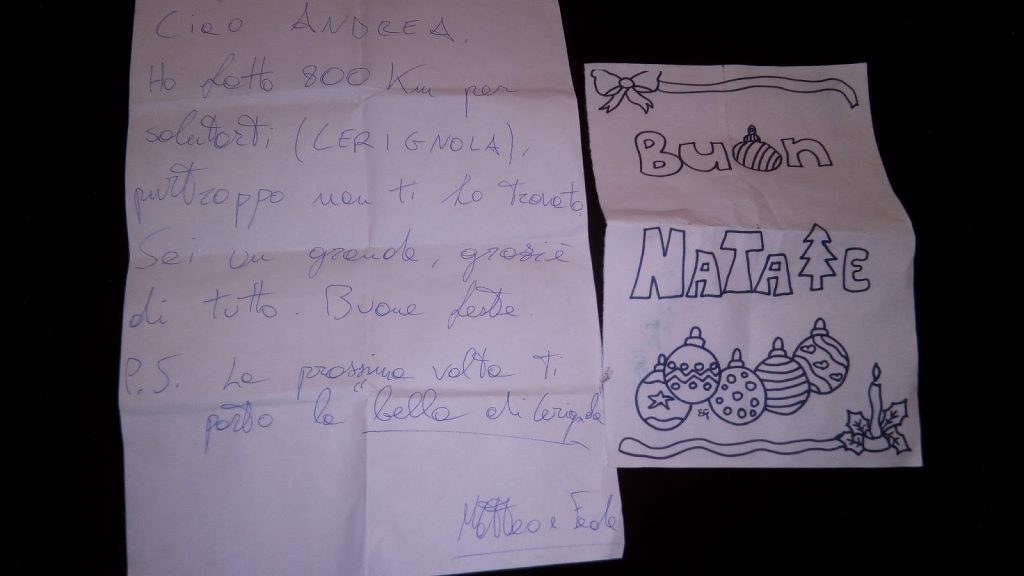 Ciao ANDREA,
Ho fatto 800 Km per
salutarti (CERIGNOLA),
purtroppo non ti ho trovato
Sei un grande, grazie
di tutto. Buone feste.
P.S. La prossima volta ti
porto la "bella di Cerignola"
Matteo e
BUON
NATALE